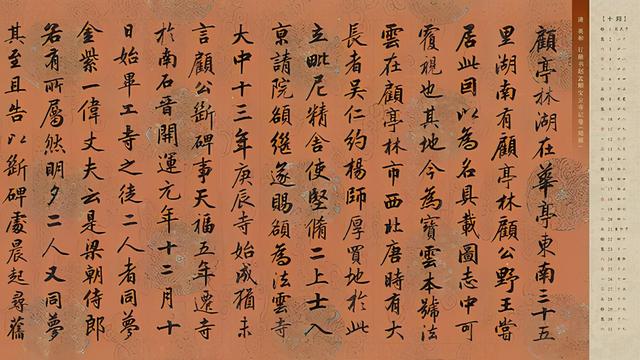 清 英和 行楷书赵孟頫宝云寺记卷（局部）
顧亭林湖在華亭東南三十五
里湖南有顧亭林顧公野王嘗
居此因以為名具載圖志中可
覆視也其地今為寶雲本號法
雲在顧亭林市西北唐時有大
長者吳仁約楊師厚買地於此
立毗尼精舍使堅脩二上士入
京請院額繼遂賜額為法雲寺
大中十三年庚辰寺始成猶未
言顧公斷碑事天福五年遷寺
於南石晉開運元年十二月十
日始畢工寺之徒二人者同夢
金紫一偉丈夫云是梁朝侍郎
若有所屬然明夕二人又同夢
其至且告以斷碑處晨起尋舊